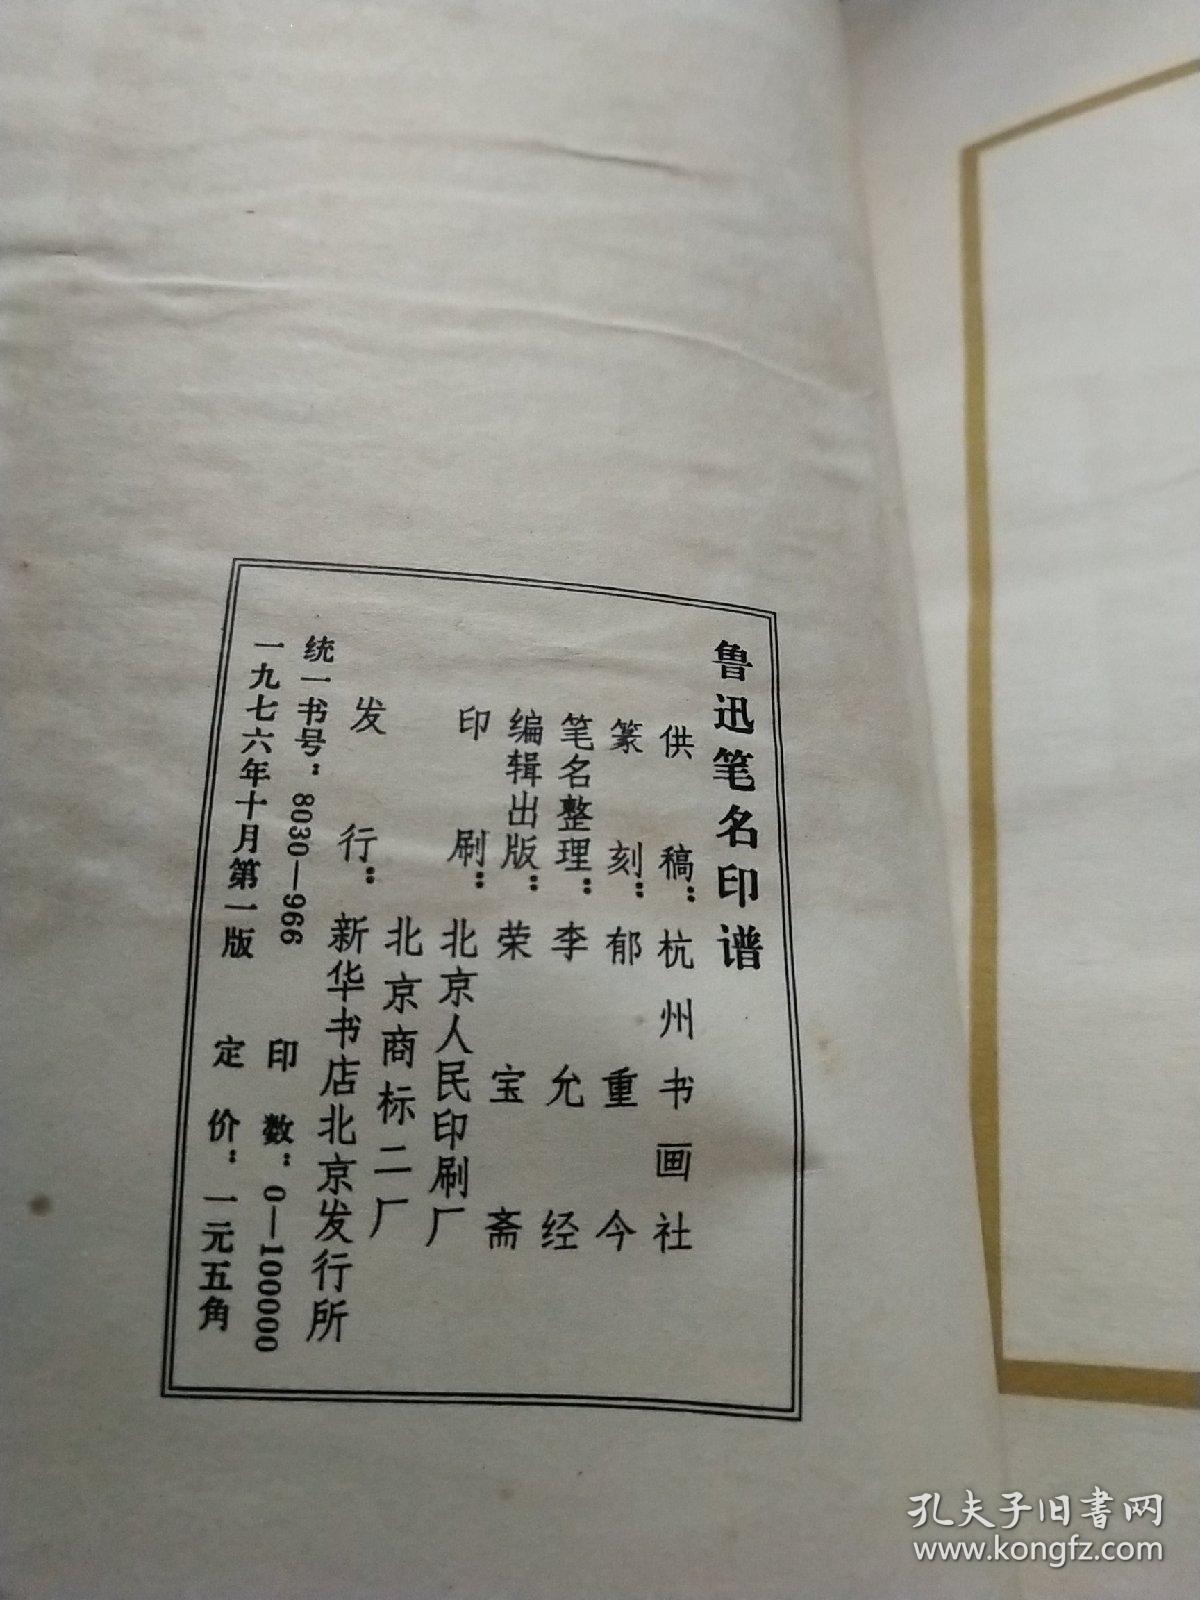 鲁迅笔名印谱
供稿：杭州书画社
篆刻：郁重今
笔名整理：李允经
编辑出版：荣宝斋
印刷：北京人民印刷厂
北京商标二厂
发行：新华书店北京发行所
统一书号：8030—966 印数：0—100000
一九七六年十月第一版 定价：一元五角
孔夫子旧书网
www.kongfz.com